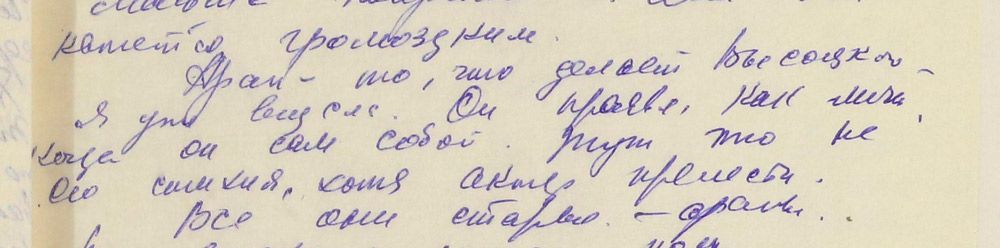 кажется громоздким.
Арап – то, что делает Высоцкий –
я уже видела. Он как
когда он сам собой. Тут это не
его стихия, хотя актер прелесть.
Все они старые –